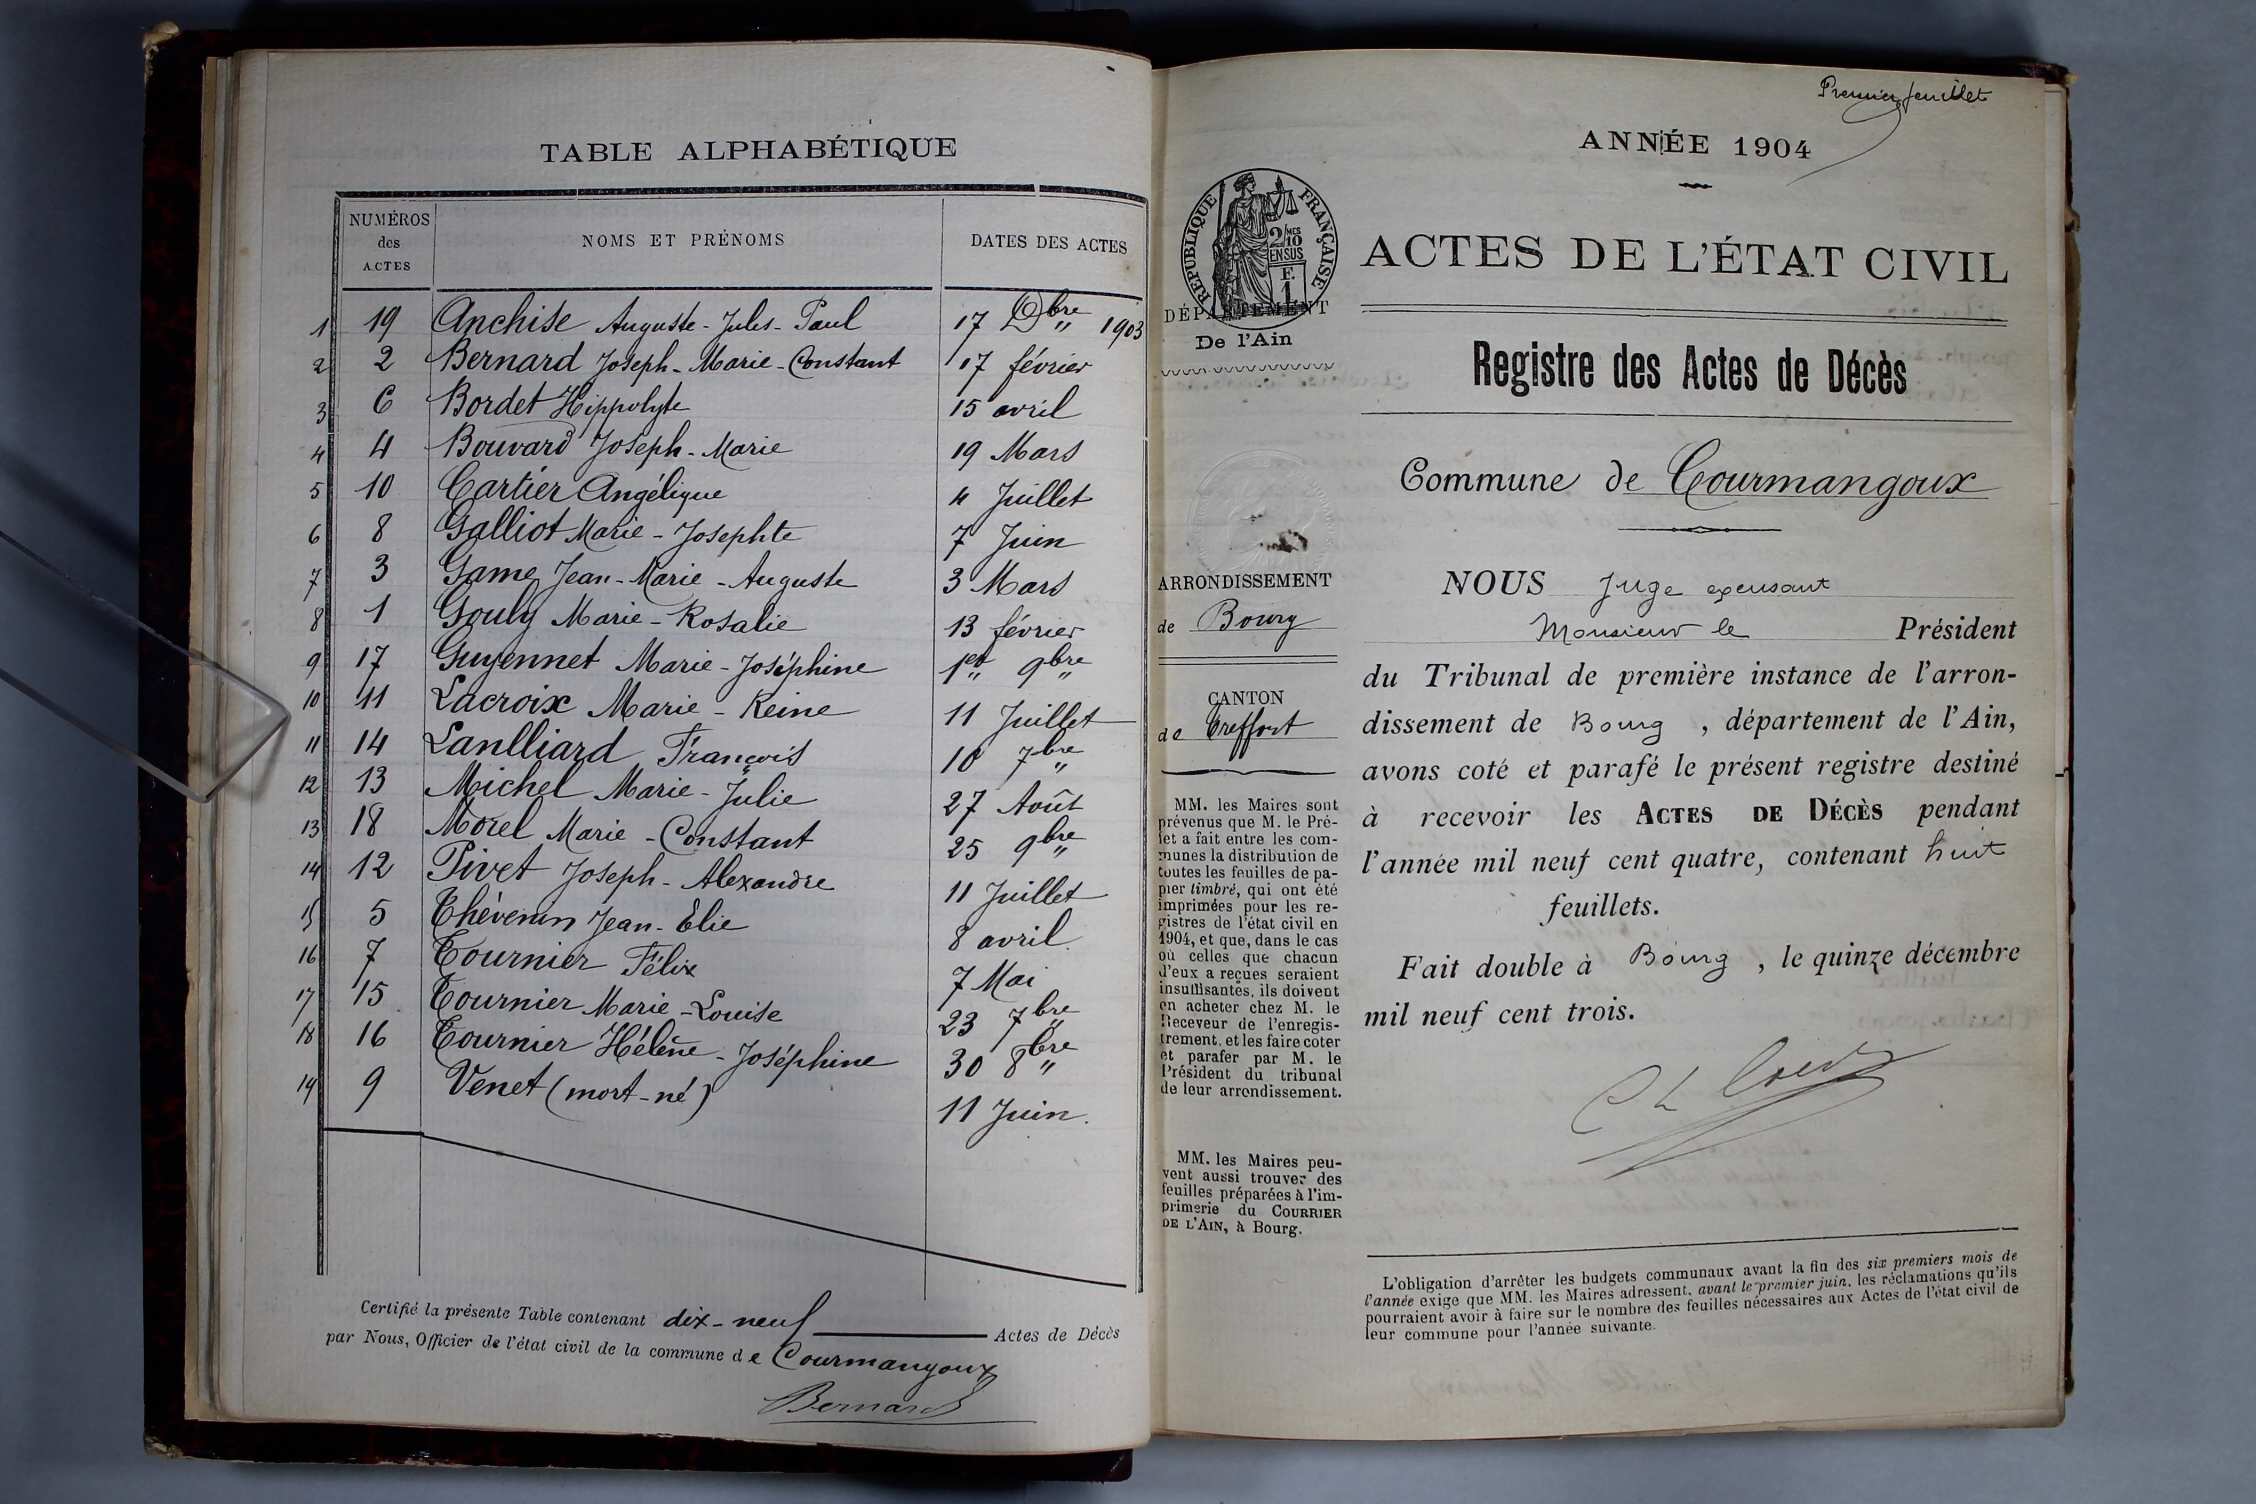 TABLE ALPHABÉTIQUE
NUMÉROS des ACTES NOMS ET PRÉNOMS DATES DES ACTES
1 19 Anchise Auguste-Jules-Paul 17 Dbre 1903
2 2 Bernard Joseph-Marie-Constant 17 février
3 6 Bordet Hippolyte 15 avril
4 4 Bouvard Joseph-Marie 19 Mars
5 10 Cartier Angélique 4 Juillet
6 8 Galliot Marie-Josephte 7 Juin
7 3 Game Jean-Marie-Auguste 3 Mars
8 1 Gouly Marie-Rosalie 13 février
9 17 Guyennet Marie-Joséphine 1er 9bre
10 11 Lacroix Marie-Reine 11 Juillet
11 14 Lanlliard François 10 7bre
12 13 Michel Marie-Julie 27 Août
13 18 Morel Marie-Constant 25 9bre
14 12 Pivet Joseph-Alexandre 11 Juillet
15 5 Thévenin Jean-Élie 8 avril
16 7 Tournier Félix 7 Mai
17 15 Tournier Marie-Louise 23 7bre
18 16 Tournier Hélène-Joséphine 30 8bre
19 9 Venet (mort-né) 11 Juin.
Certifié la présente Table contenant dix-neuf Actes de Décès
par Nous, Officier de l'état civil de la commune de Courmangoux
Bernard
Premier feuillet
ANNÉE 1904
RÉPUBLIQUE FRANÇAISE
2/10 MES
EN SUS
F.
1
DÉPARTEMENT
De l'Ain
ACTES DE L'ÉTAT CIVIL
Registre des Actes de Décès
Commune de Courmangoux
ARRONDISSEMENT
de Bourg
CANTON
de Treffort
MM. les Maires sont
prévenus que M. le Pré-
fet a fait entre les com-
munes la distribution de
toutes les feuilles de pa-
pier timbré, qui ont été
imprimées pour les re-
gistres de l'état civil en
1904, et que, dans le cas
où celles que chacun
d'eux a reçues seraient
insuffisantes, ils doivent
en acheter chez M. le
Receveur de l'enregis-
trement, et les faire coter
et parafer par M. le
Président du tribunal
de leur arrondissement.
MM. les Maires peu-
vent aussi trouver des
feuilles préparées à l'im-
primerie du COURRIER
DE L'AIN, à Bourg.
NOUS Juge excusant
Monsieur le Président
du Tribunal de première instance de l'arron-
dissement de Bourg , département de l'Ain,
avons coté et parafé le présent registre destiné
à recevoir les ACTES DE DÉCÈS pendant
l'année mil neuf cent quatre, contenant huit
feuillets.
Fait double à Bourg , le quinze décembre
mil neuf cent trois.
L'obligation d'arrêter les budgets communaux avant la fin des six premiers mois de
l'année exige que MM. les Maires adressent, avant le premier juin, les réclamations qu'ils
pourraient avoir à faire sur le nombre des feuilles nécessaires aux Actes de l'état civil de
leur commune pour l'année suivante.